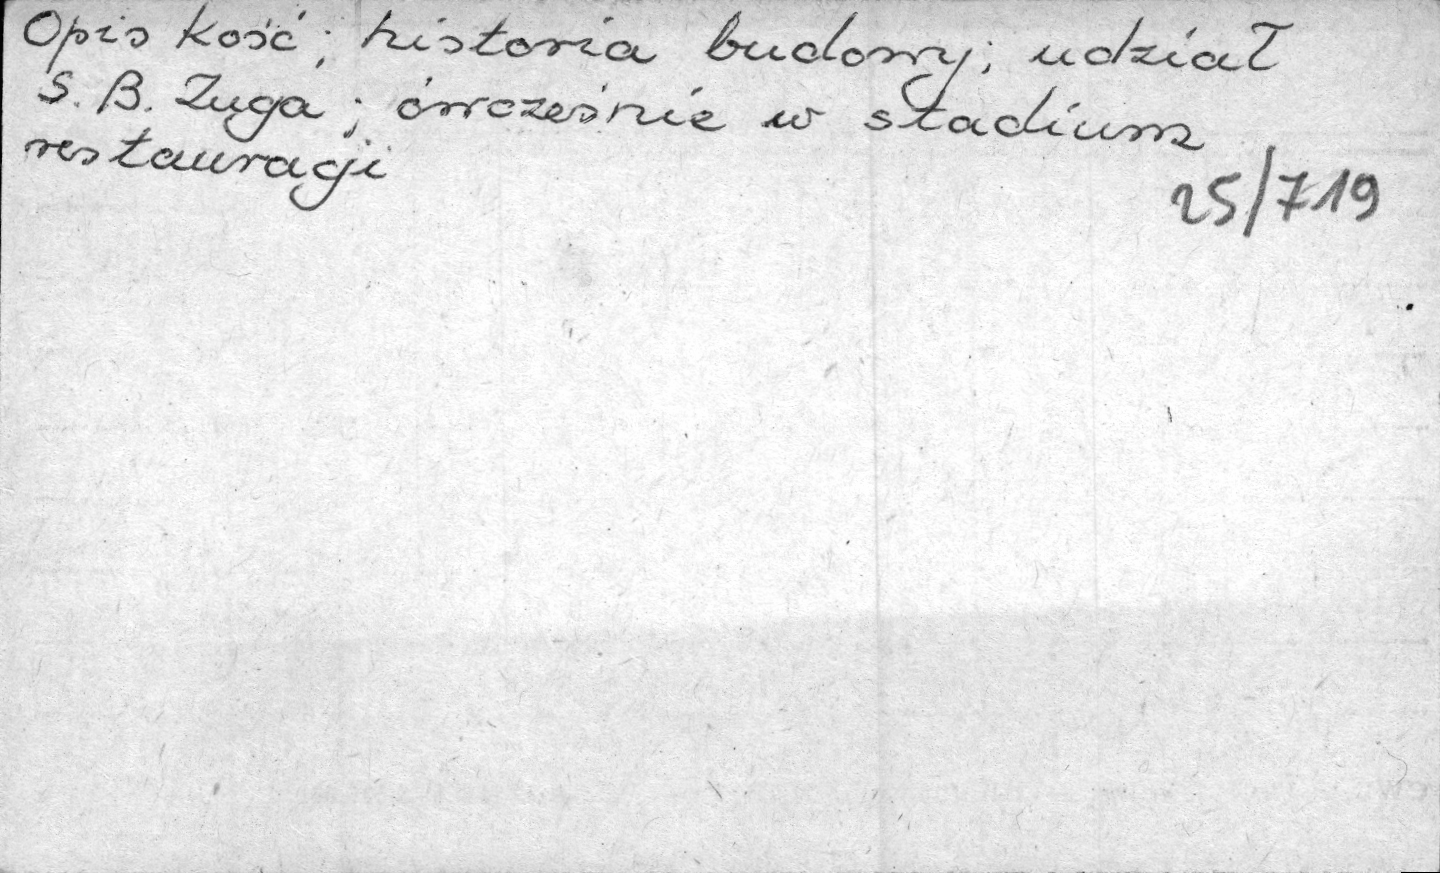 Opis kość; historia budowy; udział
S. B. Zuga; ówcześnie w stadium
restauracji
25/719